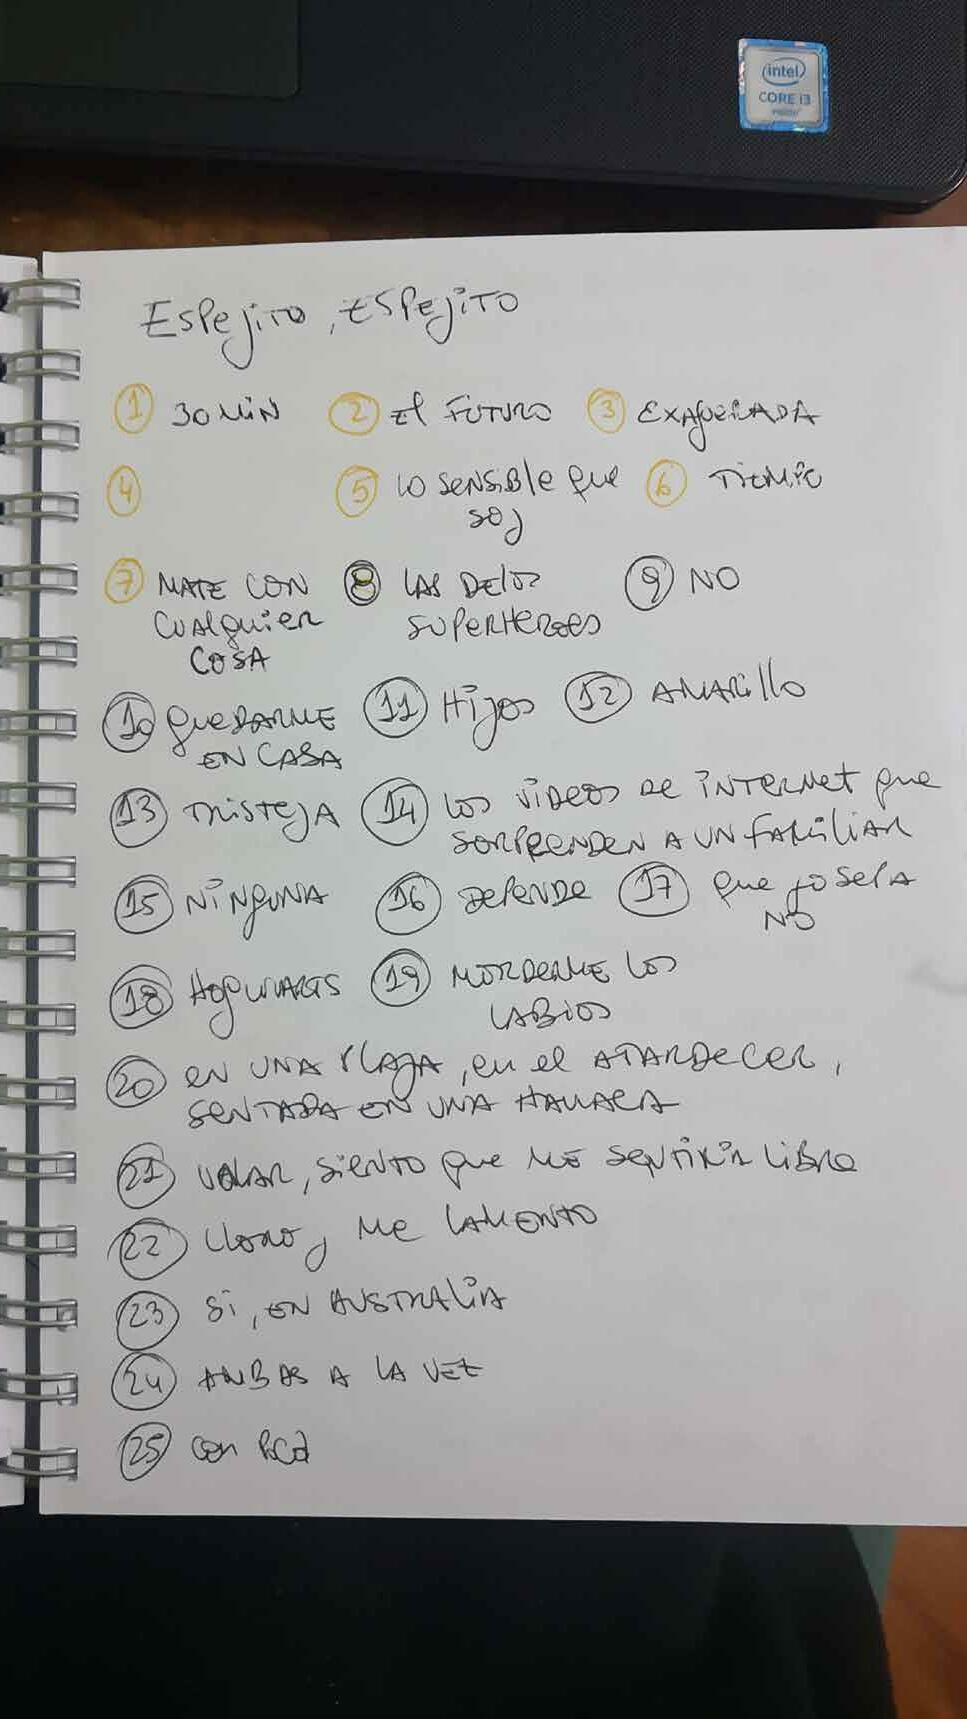 intel
CORE i3
inside
Espejito, Espejito
1 30 MIN 2 El FUTURO 3 EXAGERADA
4 5 LO SENSIBLE que 6 TIEMPO
SOY
7 MATE CON 8 LAS DE LOS 9 NO
CUALQUIER SUPERHEROES
COSA
10 QUEDARME 11 HIJOS 12 AMARILLO
EN CASA
13 TRISTEZA 14 LOS VIDEOS DE INTERNET que
SORPRENDEN A UN FAMILIAR
15 NINGUNA 16 DEPENDE 17 QUE YO SEPA
NO
18 HOGWARTS 19 MORDERME LOS
LABIOS
20 EN UNA PLAYA, en el ATARDECER,
SENTADA EN UNA HAMACA
21 VOLAR, SIENTO QUE ME SENTIRIA LIBRE
22 LLORO y ME LAMENTO
23 SI, EN AUSTRALIA
24 AMBAS A LA VEZ
25 con